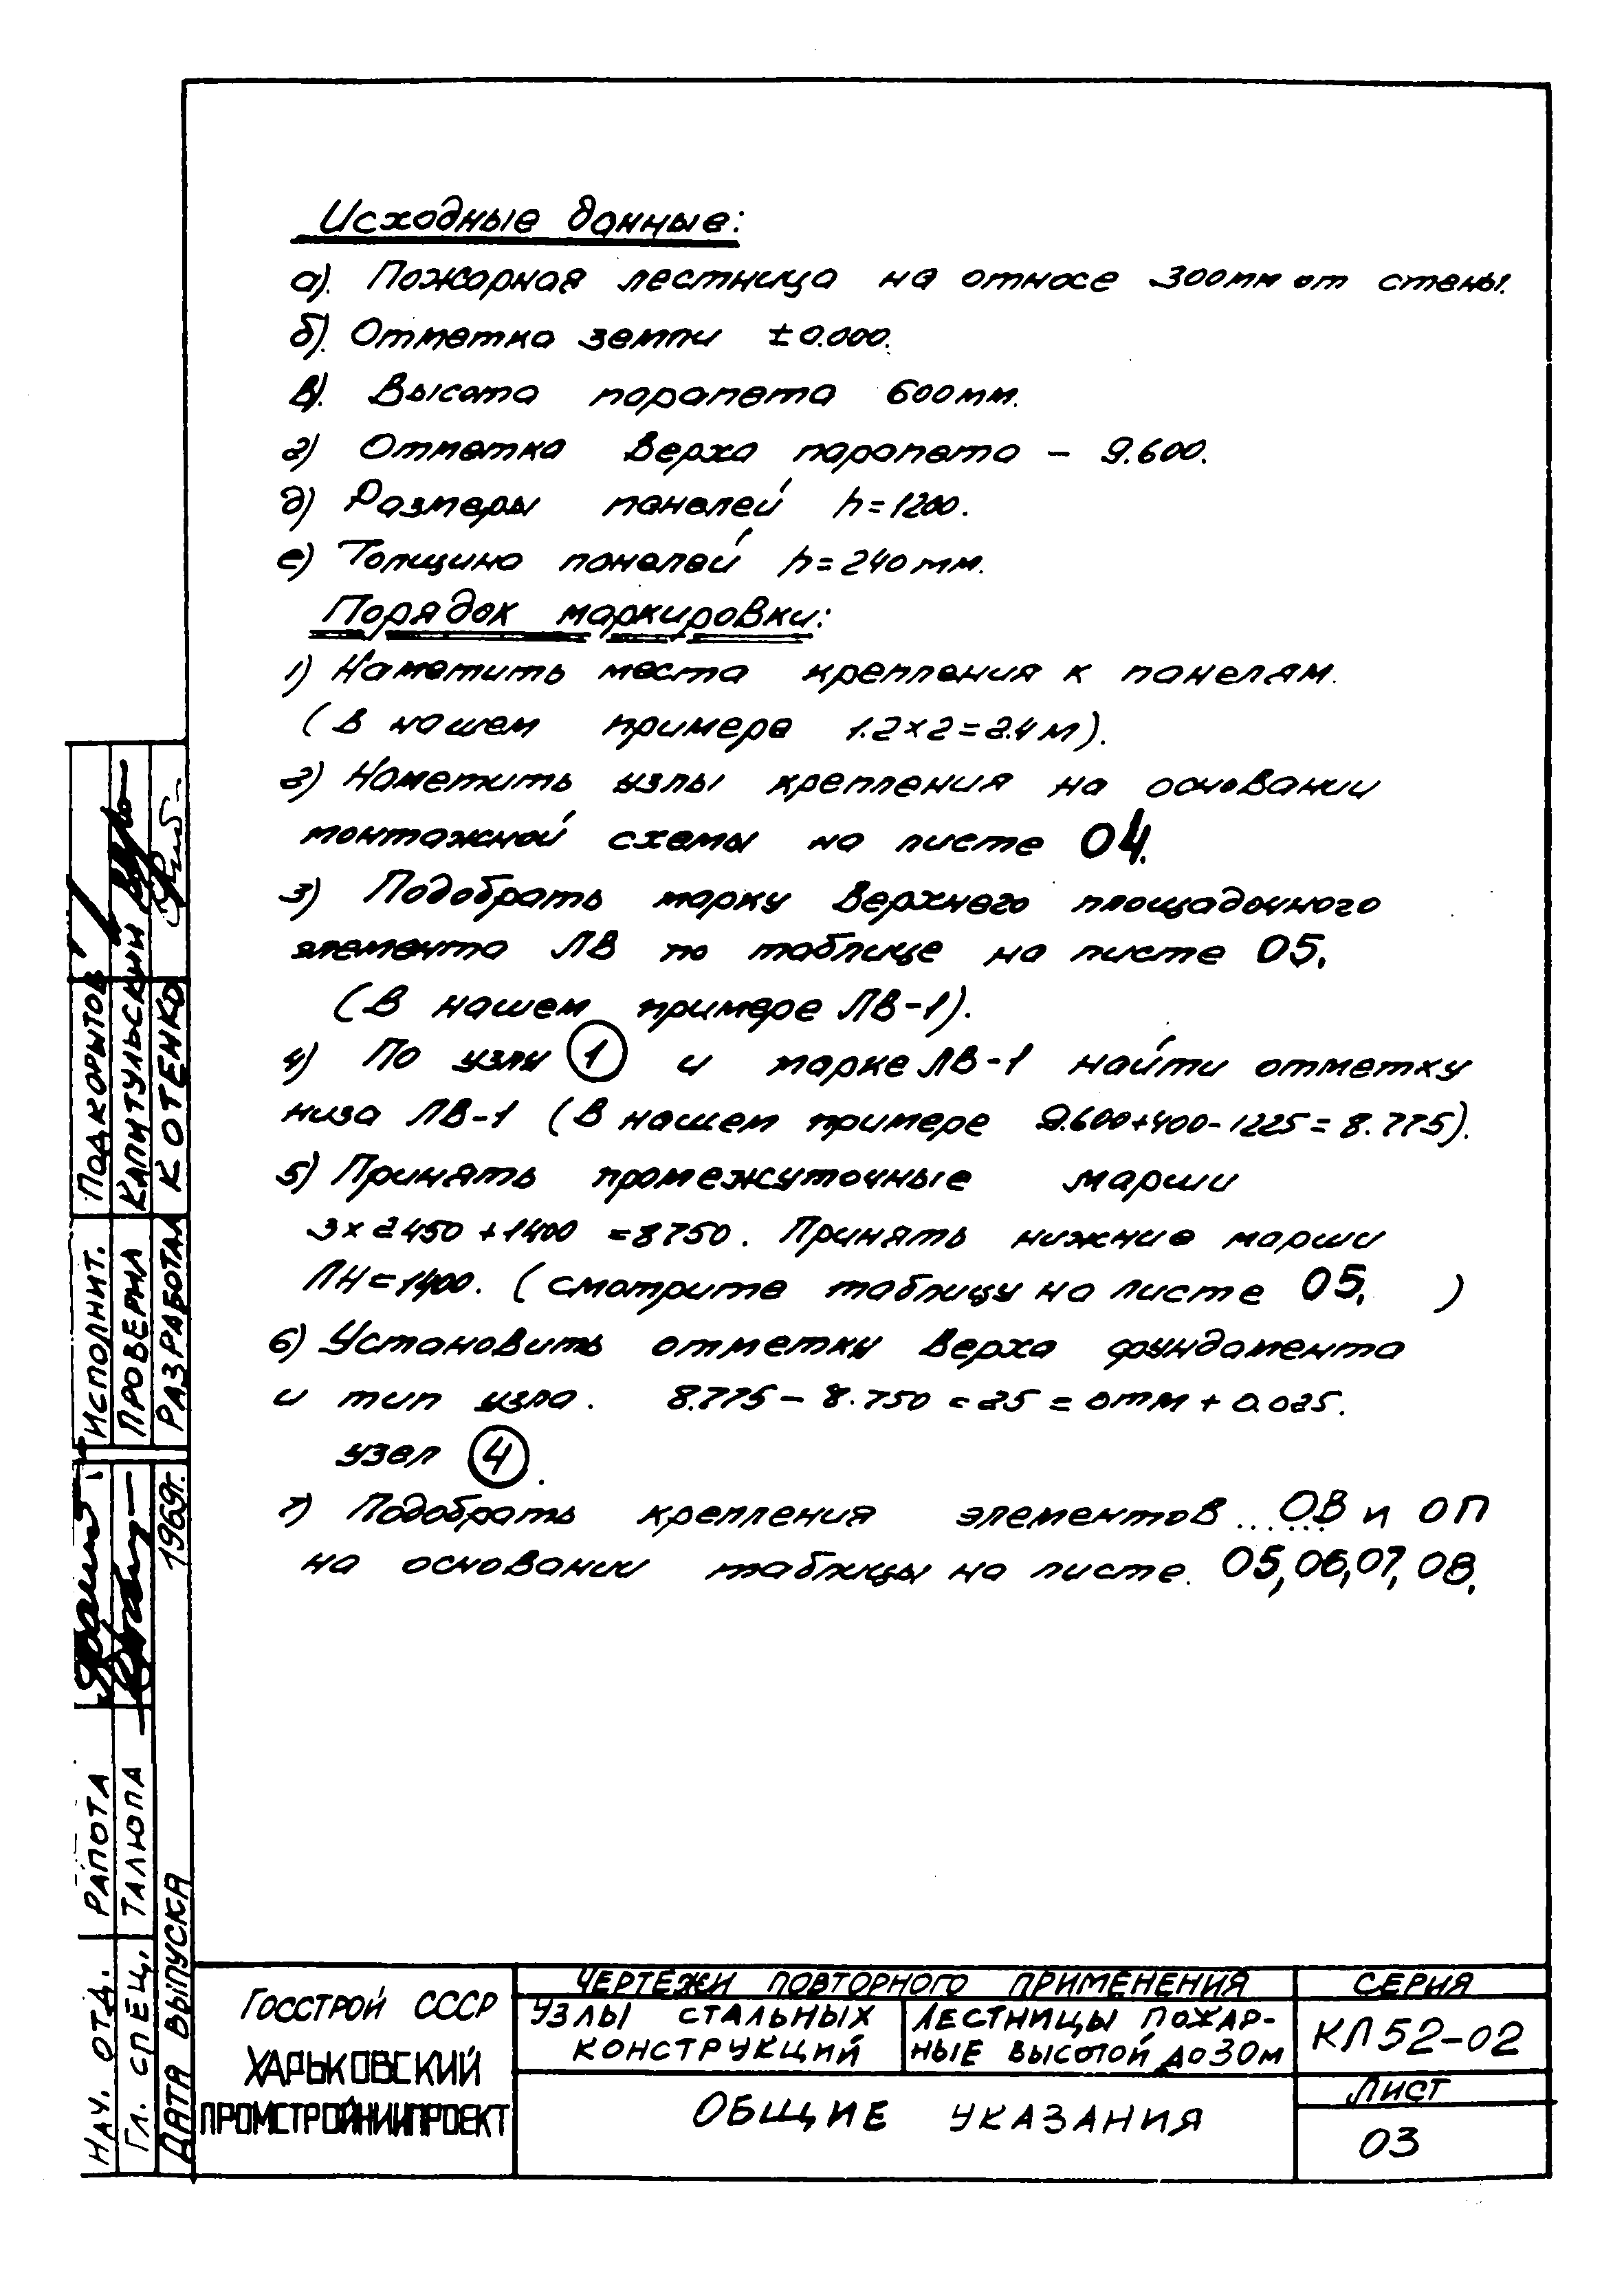 Исходные данные:
а). Пожарная лестница на относе 300мм от стены.
б). Отметка земли ±0.000.
в). Высота парапета 600мм.
г) Отметка верха парапета – 9.600.
д) Размеры панелей h=1200.
е) Толщина панелей h=240мм.
Порядок маркировки:
1) Наметить места крепления к панелям.
(в нашем примере 1.2×2=2.4м).
2) Наметить узлы крепления на основании
монтажной схемы на листе 04.
3) Подобрать марку верхнего площадочного
элемента ЛВ по таблице на листе 05.
(в нашем примере ЛВ-1).
4) По узлу 1 и марке ЛВ-1 найти отметку
низа ЛВ-1 (в нашем примере 9.600+400-1225=8.775).
5) Принять промежуточные марши
3×2450+1400=8750. Принять нижние марши
ЛН=1400. (смотрите таблицу на листе 05. )
6) Установить отметку верха фундамента
и тип узла. 8.775–8.750=25=отм+0.025.
узел 4.
7) Подобрать крепления элементов ... ОВ и ОП
на основании таблицы на листе. 05,06,07,08.
ИСПОЛНИТ. ПОДКОРЫТОВ
ПРОВЕРИЛ КАПИТУЛЬСКИЙ
РАЗРАБОТАЛ КОТЕНКО
НАЧ. ОТД. РАПОТА
ГЛ. СПЕЦ. ТАЛЮПА
ДАТА ВЫПУСКА 1969г.
ГОССТРОЙ СССР
ХАРЬКОВСКИЙ
ПРОМСТРОЙНИИПРОЕКТ
ЧЕРТЕЖИ ПОВТОРНОГО ПРИМЕНЕНИЯ
УЗЛЫ СТАЛЬНЫХ
КОНСТРУКЦИЙ
ЛЕСТНИЦЫ ПОЖАР-
НЫЕ ВЫСОТОЙ ДО 30м
ОБЩИЕ УКАЗАНИЯ
СЕРИЯ
КЛ52-02
ЛИСТ
03